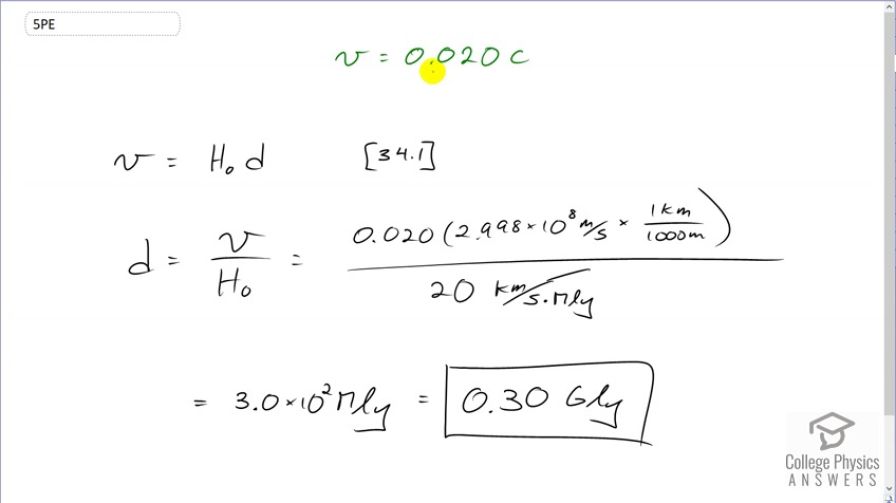 5PE
v = 0.020 c
v = H₀ d [34.1]
d = v / H₀ = 0.020 (2.998 × 10⁸ m/s × 1 km / 1000 m) / 20 km/s·Mly
= 3.0 × 10² Mly = 0.30 Gly
College Physics
ANSWERS